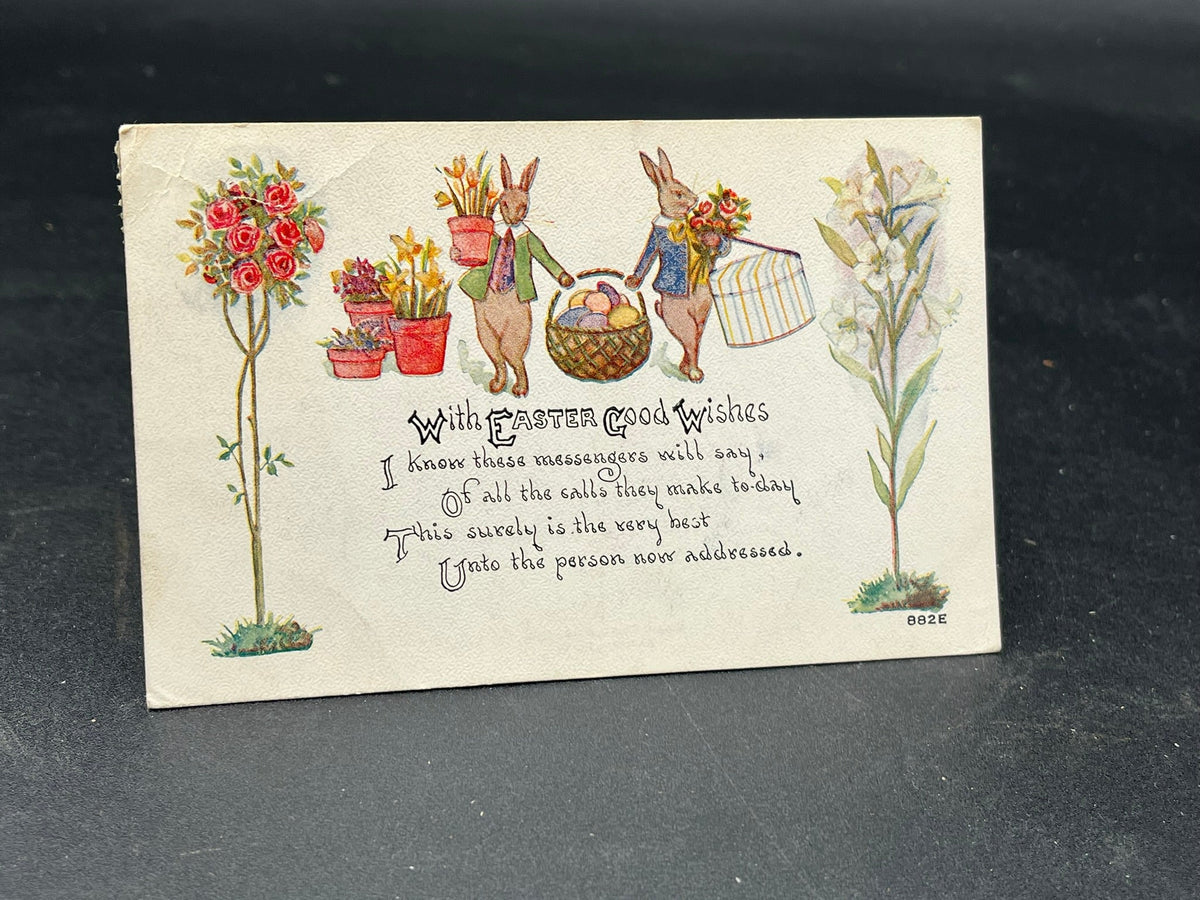 With Easter Good Wishes
I know these messengers will say,
Of all the calls they make to-day
This surely is the very best
Unto the person now addressed.
882E